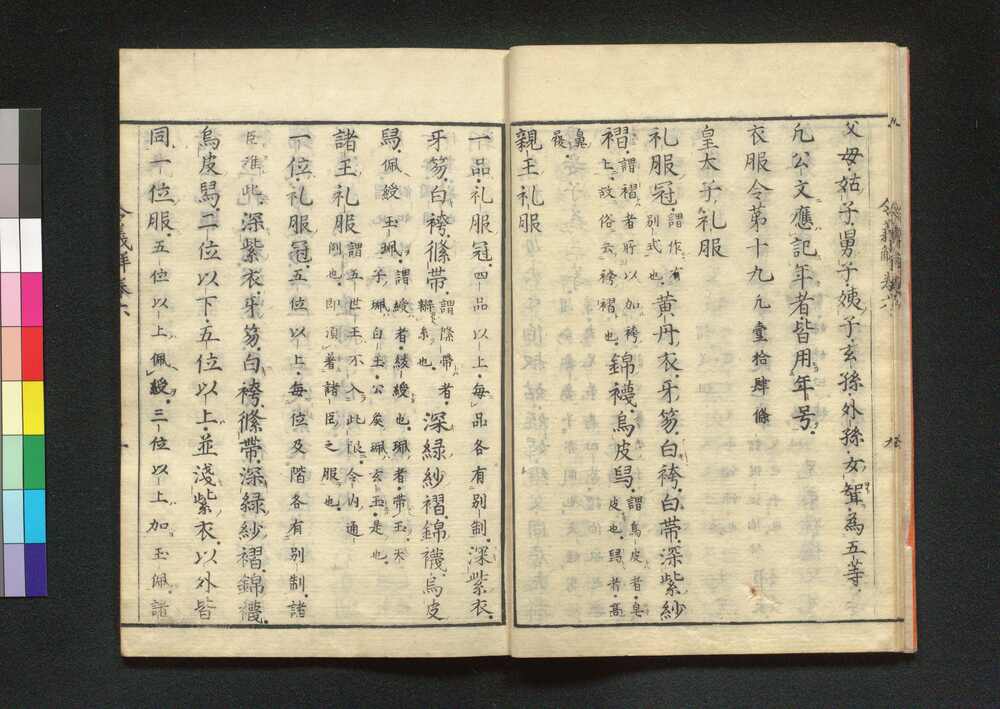 父母姑子舅子姨子玄孫外孫女聟為五等
凢公文應記年者皆用年号
衣服令第十九凢壹拾肆條
皇太子礼服
礼服冠謂作有別式也黄丹衣牙笏白袴白帯深紫紗
褶謂褶者所以加袴上故俗云袴褶也錦襪烏皮舄謂烏皮者皂皮也舄者高
鼻履
親王礼服
一品礼服冠四品以上毎品各有別制深紫衣
牙笏白袴絛帯謂絛帯者辮糸也深緑紗褶錦襪烏皮
舄佩綬玉珮謂綬者綾綬也珮者帯玉天子珮白玉公矣珮玄玉是也
諸王礼服謂五世王不入此限令内通例也即湏著諸臣之服也
一位礼服冠五位以上毎位及階各有別制諸
臣准此深紫衣牙笏白袴絛帯深緑紗褶錦襪
烏皮舄二位以下五位以上並淺紫衣以外皆
同一位服五位以上佩綬三位以上加玉佩諸
令義解巻六